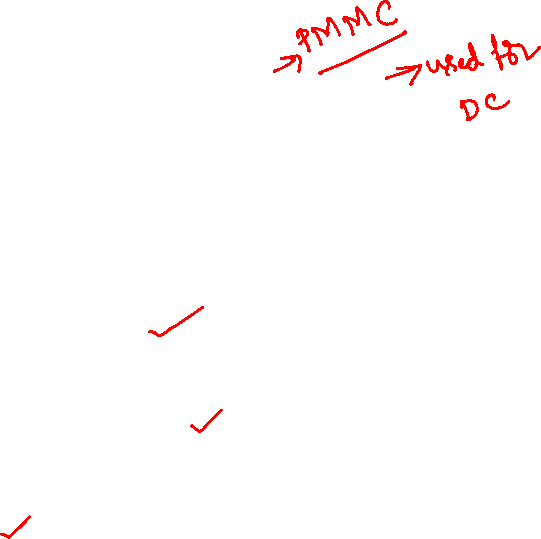 → PMMC
→ used for
DC